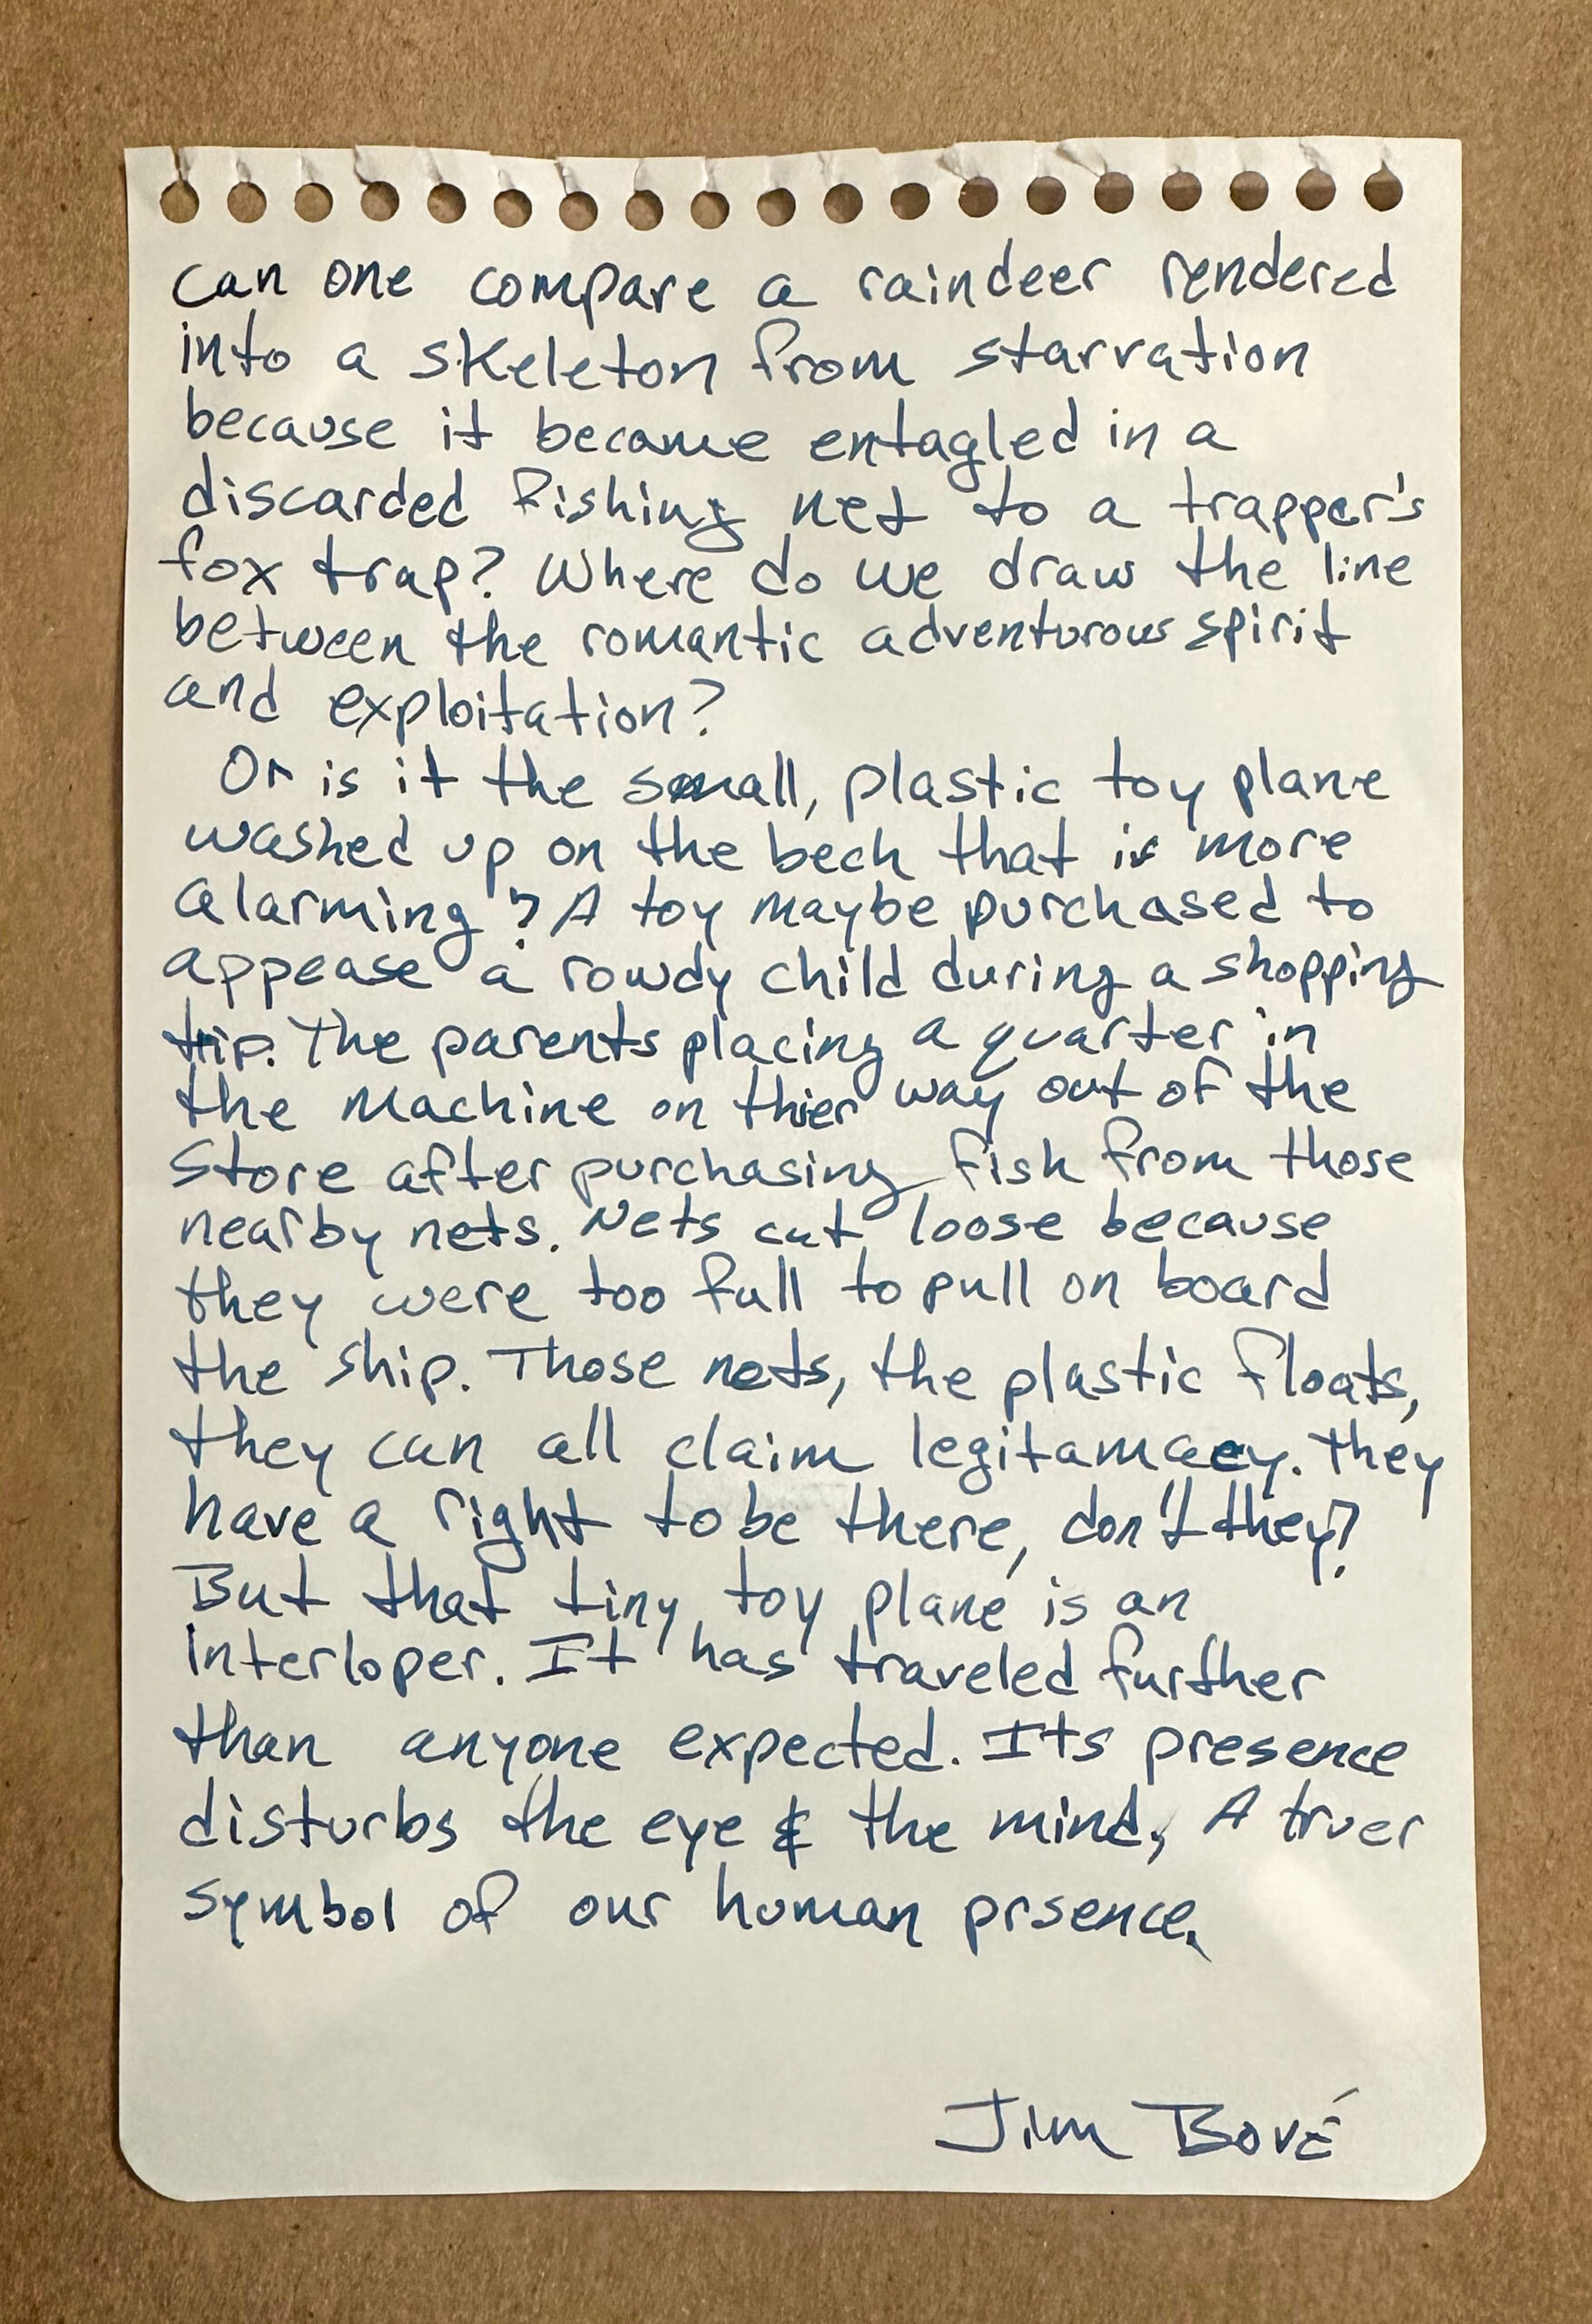 can one compare a raindeer rendered
into a skeleton from starvation
because it became entagled in a
discarded fishing net to a trapper's
fox trap? Where do we draw the line
between the romantic adventurous spirit
and exploitation?
Or is it the small, plastic toy plane
washed up on the bech that is more
alarming? A toy maybe purchased to
appease a rowdy child during a shopping
trip. The parents placing a quarter in
the machine on thier way out of the
store after purchasing fish from those
nearby nets. Nets cut loose because
they were too full to pull on board
the ship. Those nets, the plastic floats,
they can all claim legitamacy. They
have a right to be there, don't they?
But that tiny toy plane is an
interloper. It has traveled further
than anyone expected. Its presence
disturbs the eye & the mind, A truer
symbol of our human prsence.
Jim Bové